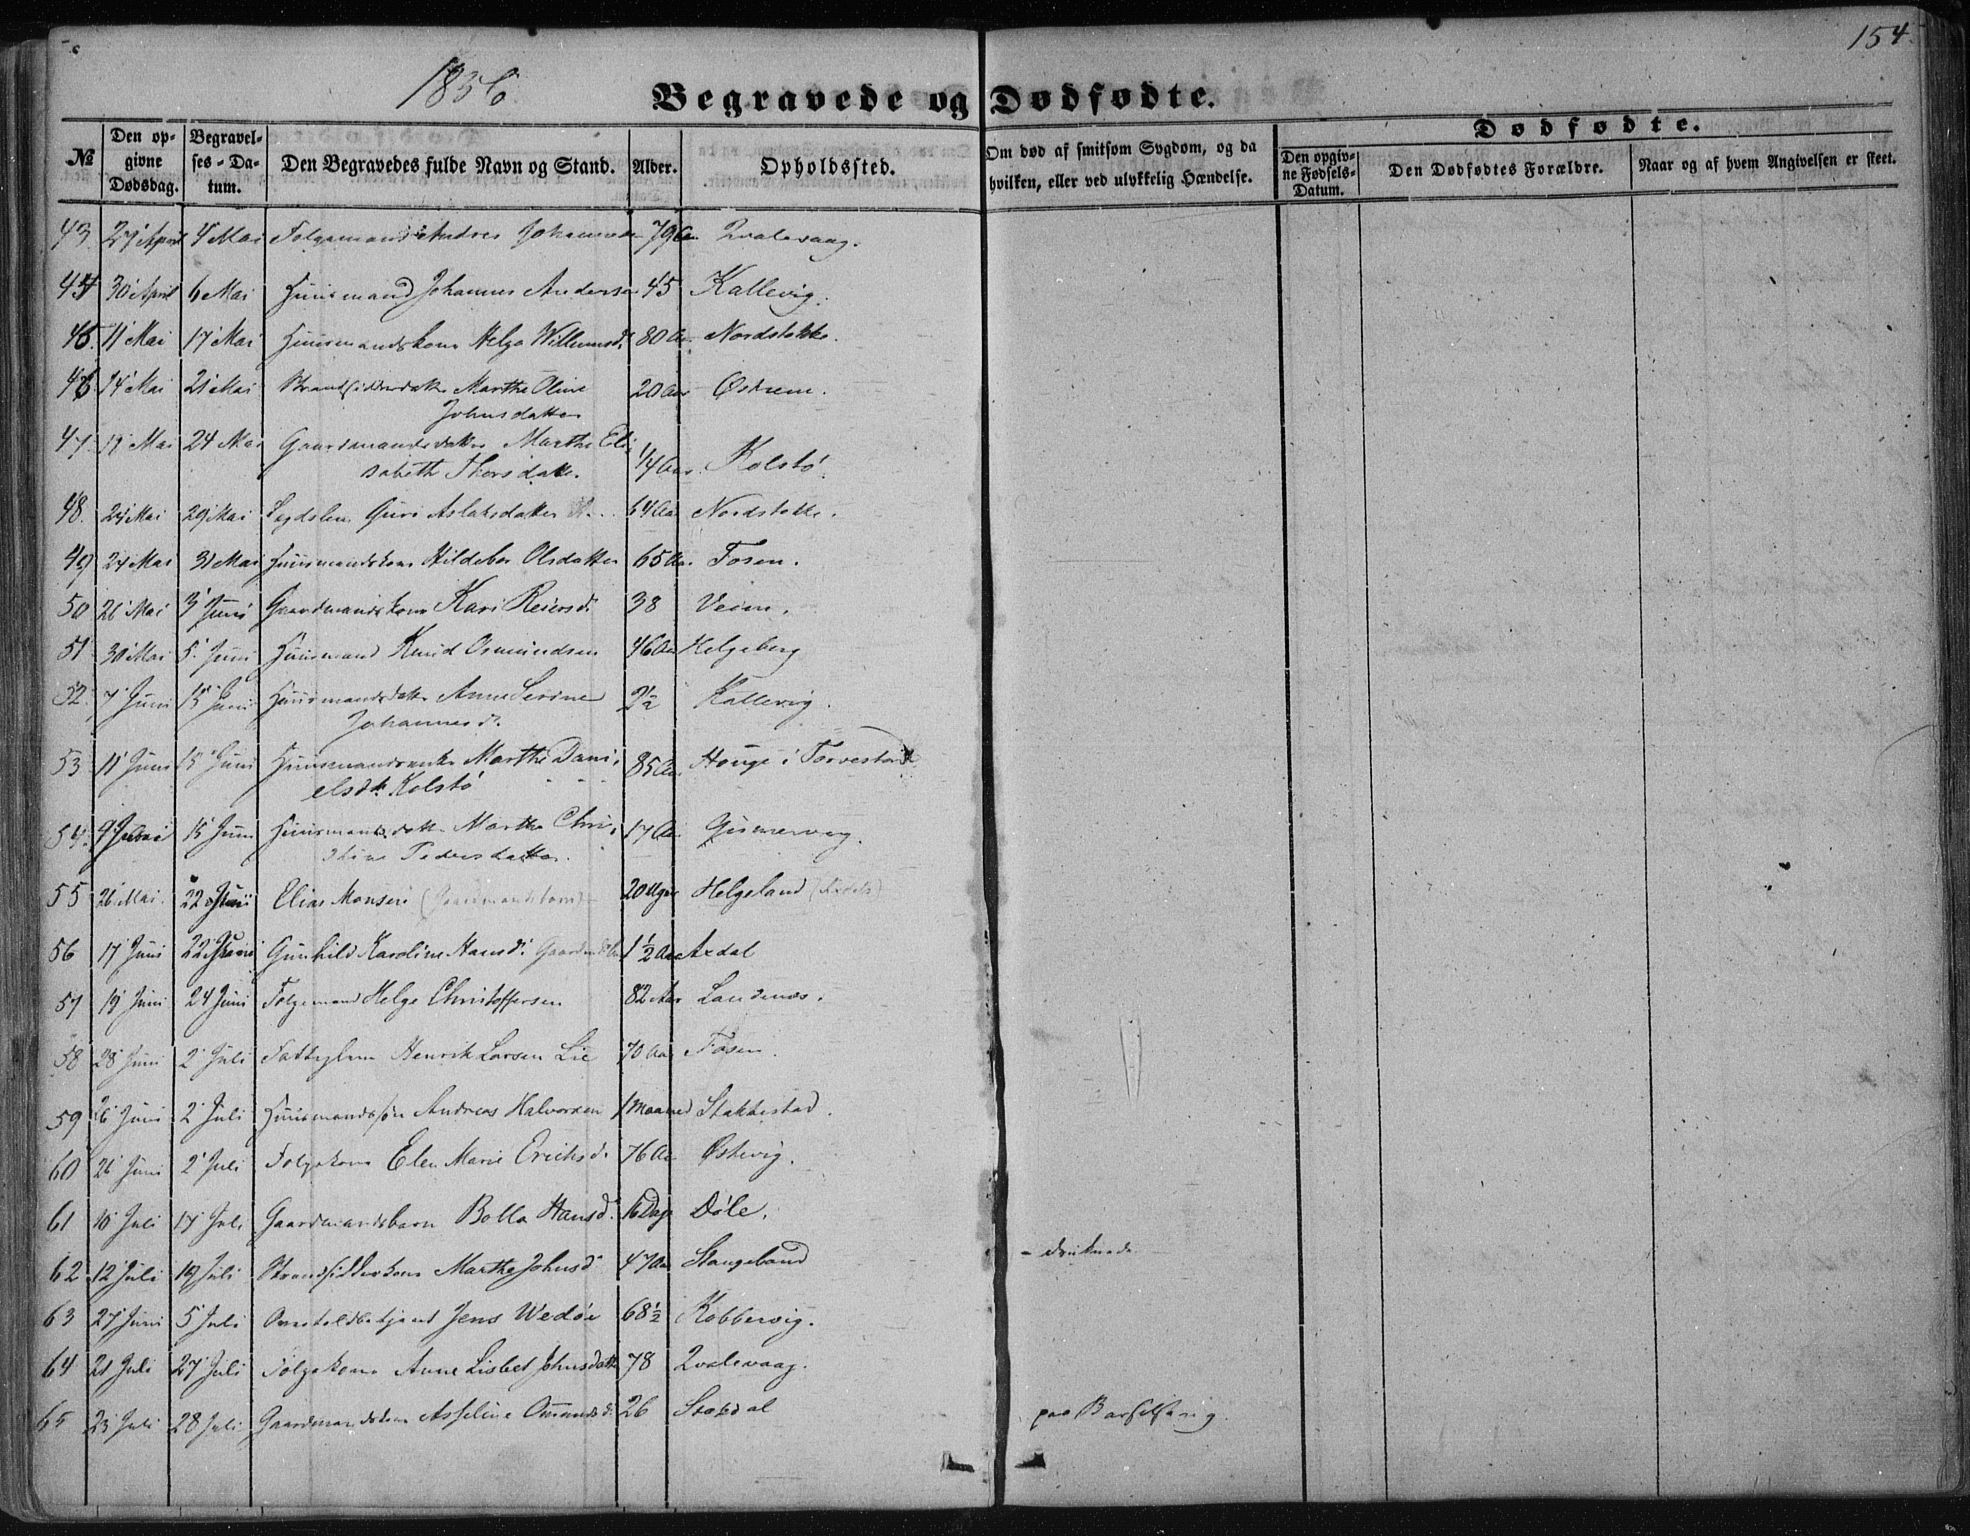 154.
1856
Begravede og Dødfødte.
Dødfødte.
№ Den opgivne Dødsdag. Begravelses-Datum. Den Begravedes fulde Navn og Stand. Alder. Opholdssted. Om død af smitsom Sygdom, og da hvilken, eller ved ulykkelig Hændelse. Den opgivne Fødsels-Datum. Den Dødfødtes Forældre. Naar og af hvem Angivelsen er skeet.
43. 27 April 4 Mai Folgemand Andres Johannesen 79 Aar Qvalevaag.
44 30 April 6 Mai Huusmand Johannes Andersen 45 Kallevig.
45. 11 Mai 17 Mai Huusmandskone Helga Willumsd. 80 Aar Nordstokke.
46 14 Mai 21 Mai Strandsidderdatter Marthe Oline
Johnsdatter 20 Aar Østrem.
47. 19 Mai 24 Mai Gaardmandsdatter Marthe Eli-
sabeth Thorsdatter. 1/4 Aar. Kolstø.
48. 24 Mai 29 Mai Lægdslem Guri Aslaksdatter 64 Aar Nordstokke.
49 24 Mai 31 Mai Huusmandskone Hildebor Olsdatter 65 Aar. Fosen.
50 26 Mai 3 Juni Gaardmandskone Kari Reiersd. 38 Veim.
51 30 Mai 5. Juni Huusmand Knud Osmundsen 46 Aar Helgeberg
52. 7 Juni 15 Juni Huusmandsdatter Anne Serine
Johannesd. 2½ Kallevig.
53 11 Juni 15 Juni Huusmandsenke Marthe Dani-
elsdtr Kolstø 85 Aar. Houge i Torvestad
54. 9 Juni 15 Juni Huusmandsdatter Marthe Chri-
stine Pedersdatter. 17 Aar Gismervig.
55 26 Mai. 22 Juni Elias Monsen (Gaardmandsbarn) 20 Uger Helgeland
56 17 Juni 22 Juni Gunhild Karoline Hansd. 1½ Aar Axdal
57 19 Juni 24 Juni Folgemand Helge Christoffersen 82 Aar Landenæs.
58 28 Juni 2 Juli Fattiglem Henrik Larsen Lie 70 Aar Fosen.
59 26 Juni 2 Juli Huusmandssøn Andreas Halvorsen 1 Maaned Stakkestad.
60 26 Juni 2 Juli Folgekone Elen Marie Erichsd. 76 Aar Østevig.
61 10 Juli 17 Juli Gaardmandsbarn Bolla Hansd. 16 Dage Døle.
62 12 Juli 19 Juli Strandsidderkone Marthe Johnsd. 47 Aar Stangeland - druknede
63 27 Juni 5 Juli Overtoldbetjent Jens Wedøe 68½ Kobbervig.
64 21 Juli 27 Juli Folgekone Anne Lisbet Johnsdatter 78 Qvalevaag.
65 23 Juli 28 Juli Gaardmandskone Asseline Omundsd. 26 Stakdal paa Barselseng.